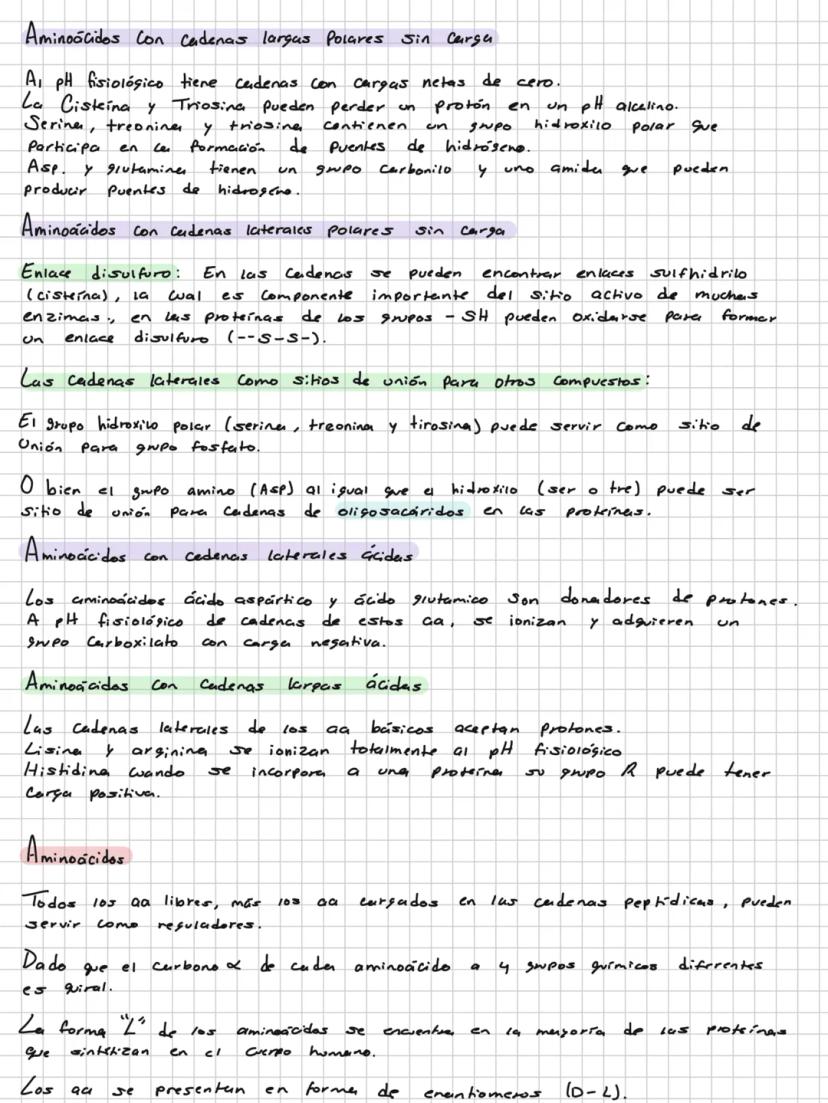 Aminoácidos con cadenas largas Polares sin carga
Al pH fisiológico tiene cadenas con cargas netas de cero.
La Cisteína y Triosina pueden perder un protón en un pH alcalino.
Serina, treonina y triosina contienen un grupo hidroxilo polar que
participa en la formación de puentes de hidrógeno.
Asp. y glutamina tienen un grupo carbonilo y uno amida que pueden
producir puentes de hidrogeno.
Aminoácidos con cadenas laterales polares sin carga
Enlace disulfuro: En las cadenas se pueden encontrar enlaces sulfhidrilo
(cisteína), la cual es componente importante del sitio activo de muchas
enzimas., en las proteínas de los grupos -SH pueden oxidarse para formar
un enlace disulfuro (--S-S-).
Las cadenas laterales como sitios de unión para otros compuestos:
El grupo hidroxilo polar (serina, treonina y tirosina) puede servir como sitio de
Unión para grupo fosfato.
O bien el grupo amino (Asp) al igual que el hidroxilo (ser o tre) puede ser
sitio de unión para cadenas de oligosacáridos en las proteínas.
Aminoácidos con cadenas laterales ácidas
Los aminoácidos ácido aspártico y ácido glutamico son donadores de protones.
A pH fisiológico de cadenas de estos aa, se ionizan y adquieren un
grupo carboxilato con carga negativa.
Aminoácidos con cadenas largas ácidas
Las cadenas laterales de los aa básicos aceptan protones.
Lisina y arginina se ionizan totalmente al pH fisiológico
Histidina cuando se incorpora a una proteína su grupo R puede tener
carga positiva.
Aminoácidos
Todos los aa libres, más los aa cargados en las cadenas peptídicas, pueden
servir como reguladores.
Dado que el carbono α de cada aminoácido a 4 grupos químicos diferentes
es quiral.
La forma "L" de los aminoácidos se encuentra en la mayoría de las proteínas
que sintetizan en el cuerpo humano.
Los aa se presentan en forma de enantiomeros (D-L).